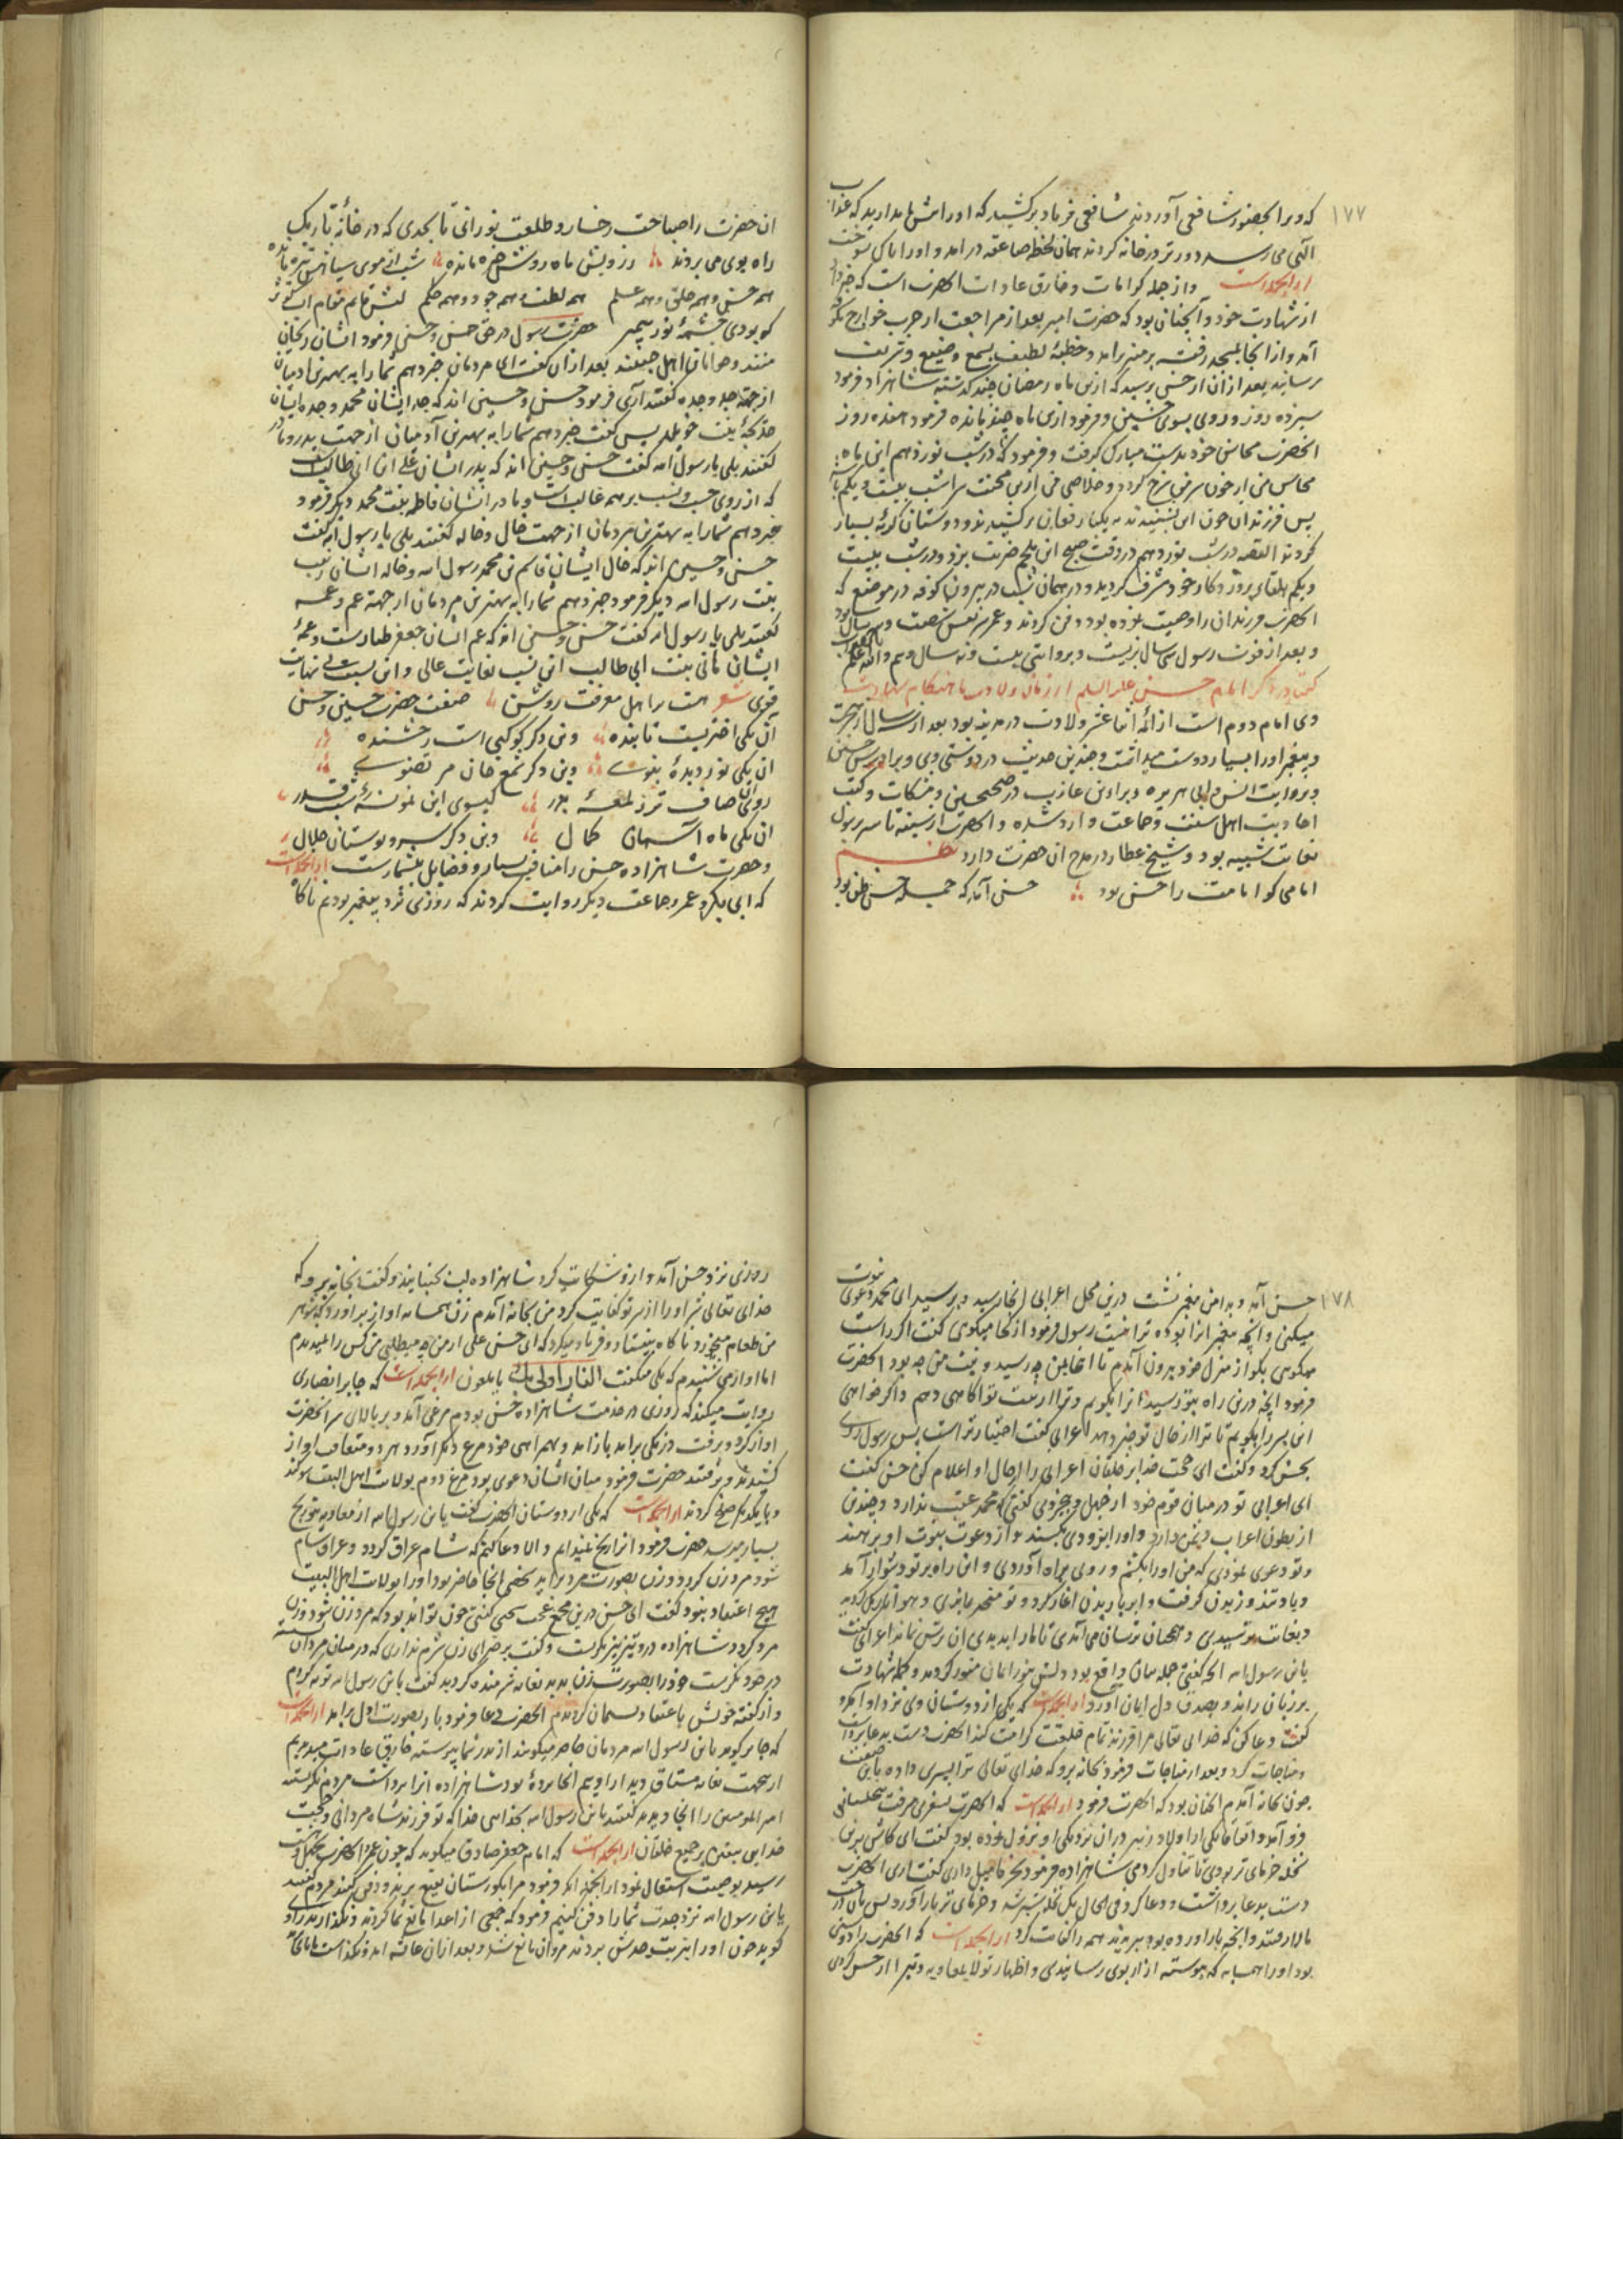 ۱۷۷
که ویرا بحضور شافعی آوردند شافعی فریاد برکشید که اورا پیش ما مدارید که عذاب
الهی می رسد دورتر در خانه کردند همان لحظه صاعقه درامد و اورا پاک سوخت
از انجمله است و از جمله کرامات و خارق عادات انحضرت است که خبر داد
از شهادت خود و آنچنانی بود که حضرت امیر بعد از مراجعت از حرب خوارج بکوفه
آمد و از انجا بمسجد رفته بر منبر برامد و خطبهٔ لطیف بسمع وضیع و شریف
رسانید بعد از ان از حسن پرسید که ازین ماه رمضان چند گذشته شاهزاد فرمود
سیزده روز و روی بسوی حسین و فرمود ازین ماه چند مانده فرمود هفده روز
انحضرت محاسن خود بدست مبارک گرفت و فرمود که در شب نوزدهم این ماه
محاسن من از خون سر من سرخ گردد و خلاصی من ازین محنت سرا شب بیست و یکم
پس فرزندان چون این بشنیدند به یکبار فغان برکشیدند و دوستان گریهٔ بسیار
کردند القصه در شب نوزدهم در وقت صبح ابن ملجم ضربت بزد و در شب بیست
و یکم بلقای پروردکار خود مشرف گردید و در همان شب در بیرون کوفه در موضعی که
انحضرت فرزندان را وصیت نموده بود دفن کردند و عمر شریفش شصت و سه سال بود
و بعد از فوت رسول سی سال بزیست و بروایتی بیست و نه سال و نیم والله اعلم بالصواب
گفتار در ذکر امام حسن علیه السلام از زمان ولادت تا هنکام شهادت
وی امام دوم است از ائمهٔ اثنا عشر ولادت در مدینه بود بعد از سه سال از هجرت
و پیغمبر اورا بسیار دوست میداشت و چندین حدیث در دوستی وی و برادرش حسین
و بروایت انس و ابی هریره و براء بن عازب در صحیحین و مشکات و کتب
احادیث اهل سنت و جماعت وارد شده و انحضرت از سینه تا سر برسول
بغایت شبیه بود و شیخ عطار در مدح ان حضرت دارد نظم
امامی کو امامت را حسن بود حسن آمد که جمله حسن ظن بود
ان حضرت را صباحت رخسار و طلعت نورانی تا بحدی که در خانهٔ تاریک
راه بوی می بردند ز رویش ماه روشن خیره مانده شب از موی سیاهش تیره مانده
هم حسن و هم خلق و هم علم هم لطف و هم جود و هم حلم لبش قایم مقام
کو بودی چشمهٔ نور پیمبر حضرت رسول در حق حسن و حسین فرمود ایشان ریحان
منند و جوانان اهل جنتند بعد ازان گفت ای مردمان خبر دهم شما را به بهترین ادمیان
از جهة جد و جده گفتند آری فرمود حسن و حسین اند که جد ایشان محمد و جده ایشان
خدیجهٔ بنت خویلد پس گفت خبر دهم شما را به بهترین آدمیان از جهت پدر و مادر
گفتند بلی یا رسول الله گفت حسن و حسین اند که پدر ایشان علی ابن ابی طالب است
که از روی حسب و نسب بر همه غالب است و مادر ایشان فاطمه بنت محمد دیگر فرمود
خبر دهم شما را به بهترین مردمان از جهت خال و خاله گفتند بلی یا رسول الله گفت
حسن و حسین اند که خال ایشان قاسم بن محمد رسول الله و خاله ایشان زینب
بنت رسول الله دیگر فرمود خبر دهم شما را به بهترین مردمان از جهة عم و عمه
گفتند بلی یا رسول الله گفت حسن و حسین اند که عم ایشان جعفر طیار است و عمهٔ
ایشان هانی بنت ابی طالب این نسب بغایت عالی و این نسبت بی نهایت
قوی شعر هست بر اهل معرفت روشن صفت حضرت حسین و حسن
آن یکی اختریست تابنده وین دکر کوکبی است رخشنده
ان یکی نور دیدهٔ نبوی وین دکر شمع جان مرتضوی
روی ان صاف تر ز لمعهٔ بدر کیسوی این نمونهٔ شب قدر
ان یکی ماه آسمان کمال وین دکر سرو بوستان جلال
و حضرت شاهزاده حسن را مناقب بسیار و فضایل بیشمار است از انجمله است
که ابی بکر و عمر و جماعت دیگر روایت کردند که روزی نزد پیغمبر بودیم ناگاه
۱۷۸
حسن آمد و بدامن پیغمبر نشست درین محل اعرابی انجا رسید و پرسید ای محمد دعوی نبوت
میکنی و آنچه پیغمبر انرا بوده ترا نیست رسول فرمود از کجا میکوی گفت اگر راست
میکوی بکو از منزل خود بیرون آمدم تا اینجا بمن چه رسید و نیت من چه بود انحضرت
فرمود انچه درین راه بتو رسید انرا بکویم و ترا از نیت تو اگاهی دهم و اگر خواهی
این پسر را بکویم تا ترا از حال تو خبر دهد اعرابی گفت اختیار تراست پس رسول روی
بحسن کرد و گفت ای حجت خدا بر خلقان اعرابی را از حال او اعلام کن حسن گفت
ای اعرابی تو در میان قوم خود از جهل و بیخردی گفتی که محمد عقب ندارد و چندین
از بطون اعراب دشمن دارد و اورا بزودی بکشند و از دعوت نبوت او برهند
و تو دعوی نمودی که من اورا بکشم و روی براه آوردی و این راه بر تو دشوار آمد
و باد تند وزیدن گرفت و ابر باریدن اغاز کرد و تو متحیر ماندی و هوا تاریک گردید
و بغایت ترسیدی و همچنان ترسان می آمدی تا مارا بدیدی ان ترس نماند اعرابی گفت
یا ابن رسول الله انچه گفتی جمله بیان واقع بود دلش بنور ایمان منور کردید و کلمه شهادت
بر زبان راند و بصدق دل ایمان آورد از انجمله است که یکی از دوستان وی نزد او آمد و
گفت دعا کن که خدای تعالی مرا فرزند تمام خلقت کرامت کند انحضرت دست بدعا برداشت
و مناجات کرد و بعد از مناجات فرمود بخانه برو که خدای تعالی ترا پسری داده باین صفت
چون بخانه آمدم انچنان بود که انحضرت فرمود از انجمله است که انحضرت بسفر می رفت
فرو آمد و اتفاقا یکی از اولاد زبیر در ان نزدیکی او نزول نموده بود گفت ای کاش برین
نخله خرمای تر بودی تا تناول کردمی شاهزاده فرمود بخرما میل داری گفت آری انحضرت
دست بدعا برداشت و دعا کرد فی الحال یک نخله سبز شد و خرمای تر بار آورد پس
بالا رفتند و انچه بار اورده بود ببریدند همه را کفایت کرد از انجمله است که انحضرت را دوستی
بود اورا همسایه که پیوسته ازار بوی رسانیدی و اظهار تولا بمعاویه و تبرا از حسن کردی
روزی نزد حسن آمد و ازو شکایت کرد شاهزاده لب بجنبانید و گفت بخانه برو که
خدای تعالی شر اورا از سر تو کفایت کرد من بخانه آمدم زن همسایه اواز براورد که شوهر
من طعام میخورد ناکاه بیفتاد و فریاد میکرد که ای حسن علی از من چه میطلبی من کس را نمیدیدم
اما اواز می شنیدم که یکی میگفت النار اولی بک یا ملعون از انجمله است که جابر انصاری
روایت میکند که روزی در خدمت شاهزاده حسن بودم مرغی آمد و بر بالای سر انحضرت
اواز کرد و برفت در یکی برامد باز امد و بهمراهی خود مرغ دیگر آورد هردو متعاقب اواز
کشیدند و برفتند حضرت فرمود میان ایشان دعوی بود مرغ دوم بولایت اهل البیت سوگند
و با یکدیگر صلح کردند از انجمله است که یکی از دوستان انحضرت گفت یا ابن رسول الله از معاویه بتو رنج
بسیار میرسد حضرت فرمود انرا رنج نمیدانم و الا دعا کنم که شام عراق گردد و عراق شام
شود مرد زن گردد و زن بصورت مرد براید شخصی انجا حاضر بود اورا بولایت اهل البیت
هیچ اعتقاد نبود گفت ای حسن درین مجمع عجب سخنی گفتی چون تواند بود که مرد زن شود و زن
مرد گردد شاهزاده درو تیز تیز نگریست و گفت برخیز ای زن شرم نداری که در میان مردان نشسته
در خود نگریست خود را بصورت زن بدید بغایت شرمنده گردید گفت یا ابن رسول الله توبه کردم
و از گفته خویش با عتقاد پشیمان گردیدم انحضرت دعا فرمود باز بصورت اول برامد از انجمله است
که جابر گوید یا ابن رسول الله مردمان حاضر میگویند از پدر شما پیوسته خارق عادات میدیدیم
ازینجهت بغایت مشتاق دیدار اویم انجا پردهٔ بود شاهزاده انرا برداشت مردم نگریستند
امیر المومنین را انجا دیدند گفتند یا ابن رسول الله بخدای خدا که تو فرزند شاه مردانی و حجت
خدایی بیقین بر جمیع خلقان از انجمله است که امام جعفر صادق میکوید که چون عمر انحضرت بچهل و شش
رسید بوصیت اشتغال نمود از انجمله انکه فرمود مرا بکورستان بقیع برید و دفن کنید مردم گفتند
یا ابن رسول الله نزد جدت شما را دفن کنیم فرمود که جمعی از اعدا مانع ما گردند و نگذارند راوی
گوید چون اورا بتربت جدش بردند مروان مانع شد و بعد ازان عایشه امد و نگذاشت